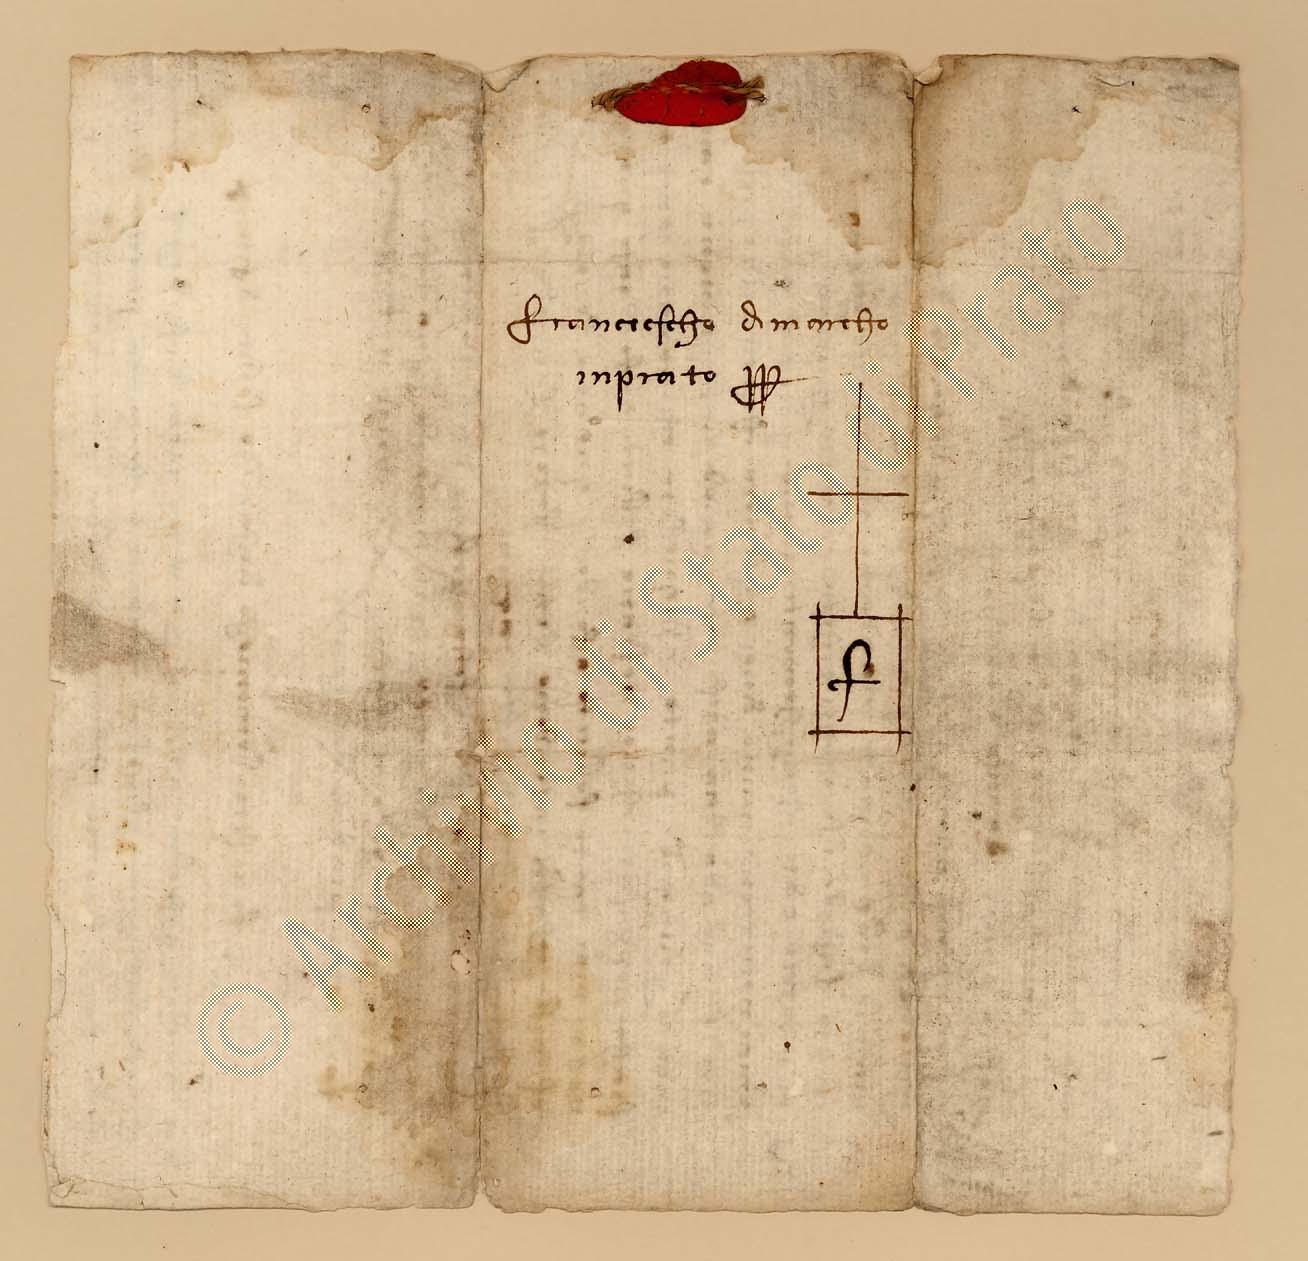 Franciescho dimarcho
inprato
f
© Archivio di Stato di Prato